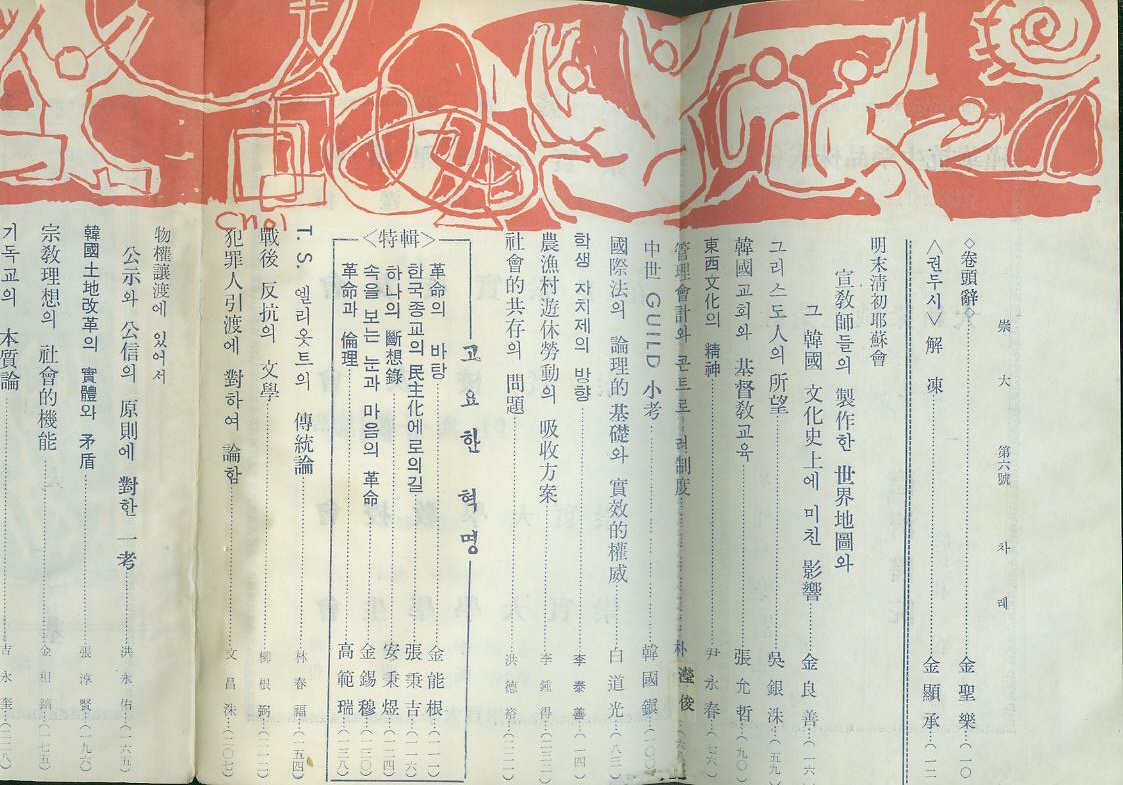 崇大 第六號 차례
◇卷頭辭◇ 金聖樂 (一〇
<권두시> 解凍 金顯承 (一二
明末清初耶蘇會
宣敎師들의 製作한 世界地圖와
그 韓國 文化史上에 미친 影響 金良善 (一六
그리스도人의 所望 吳銀洙 (五九
韓國교회와 基督敎교육 張允哲 (九〇
東西文化의 精神 尹永春 (七六
管理會計와 콘트로 러制度 朴瀅俊 (六九
中世 GUILD 小考 韓國鎭 (一〇〇
國際法의 論理的 基礎와 實效的 權威 白道光 (八三
학생 자치제의 방향 李泰善 (一四
農漁村遊休勞動의 吸收方案 李鍾得 (二三二
社會的共存의 問題 洪德裕 (二二一
고요한 혁명
<特輯>
革命의 바탕 金能根 (一一一
한국종교의 民主化에로의길 張秉吉 (一一六
하나의 斷想錄 安秉煜 (一二四
속을 보는 눈과 마음의 革命 金錫穆 (一三〇
革命과 倫理 高範瑞 (一三八
T.S. 엘리옷트의 傳統論 林春福 (一五四
戰後 反抗의 文學 柳根弼 (二一二
犯罪人引渡에 對하여 論함 文昌洙 (二〇七
Choi
物權讓渡에 있어서
公示와 公信의 原則에 對한 一考 洪永佑 (一六五)
韓國土地改革의 實體와 矛盾 張淳賢 (一九六)
宗敎理想의 社會的機能 金相鎬 (一七五)
기독교의 本質論 吉永奎 (二二八)